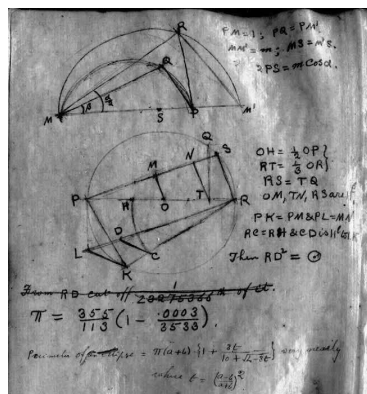 PM = 1; PQ = PM'
MM' = m; MS = M'S.
2PS = m Cos α.
R
Q
M
S
P
M'
Q
M
N
S
P
H
O
T
R
L
D
C
K
OH = 1/2 OP}
RT = 1/3 OR}
RS = TQ
OM, TN, RS are ||
PK = PM & PL = MN
RC = RH & CD is ||
Then RD² = ⊙
From RD cut off
π = 355/113 (1 - .0003/3533).
Perimeter of an ellipse = π(a+b) {1 + 3t/(10+√(4-3t))} very nearly
where t = ((a-b)/(a+b))²